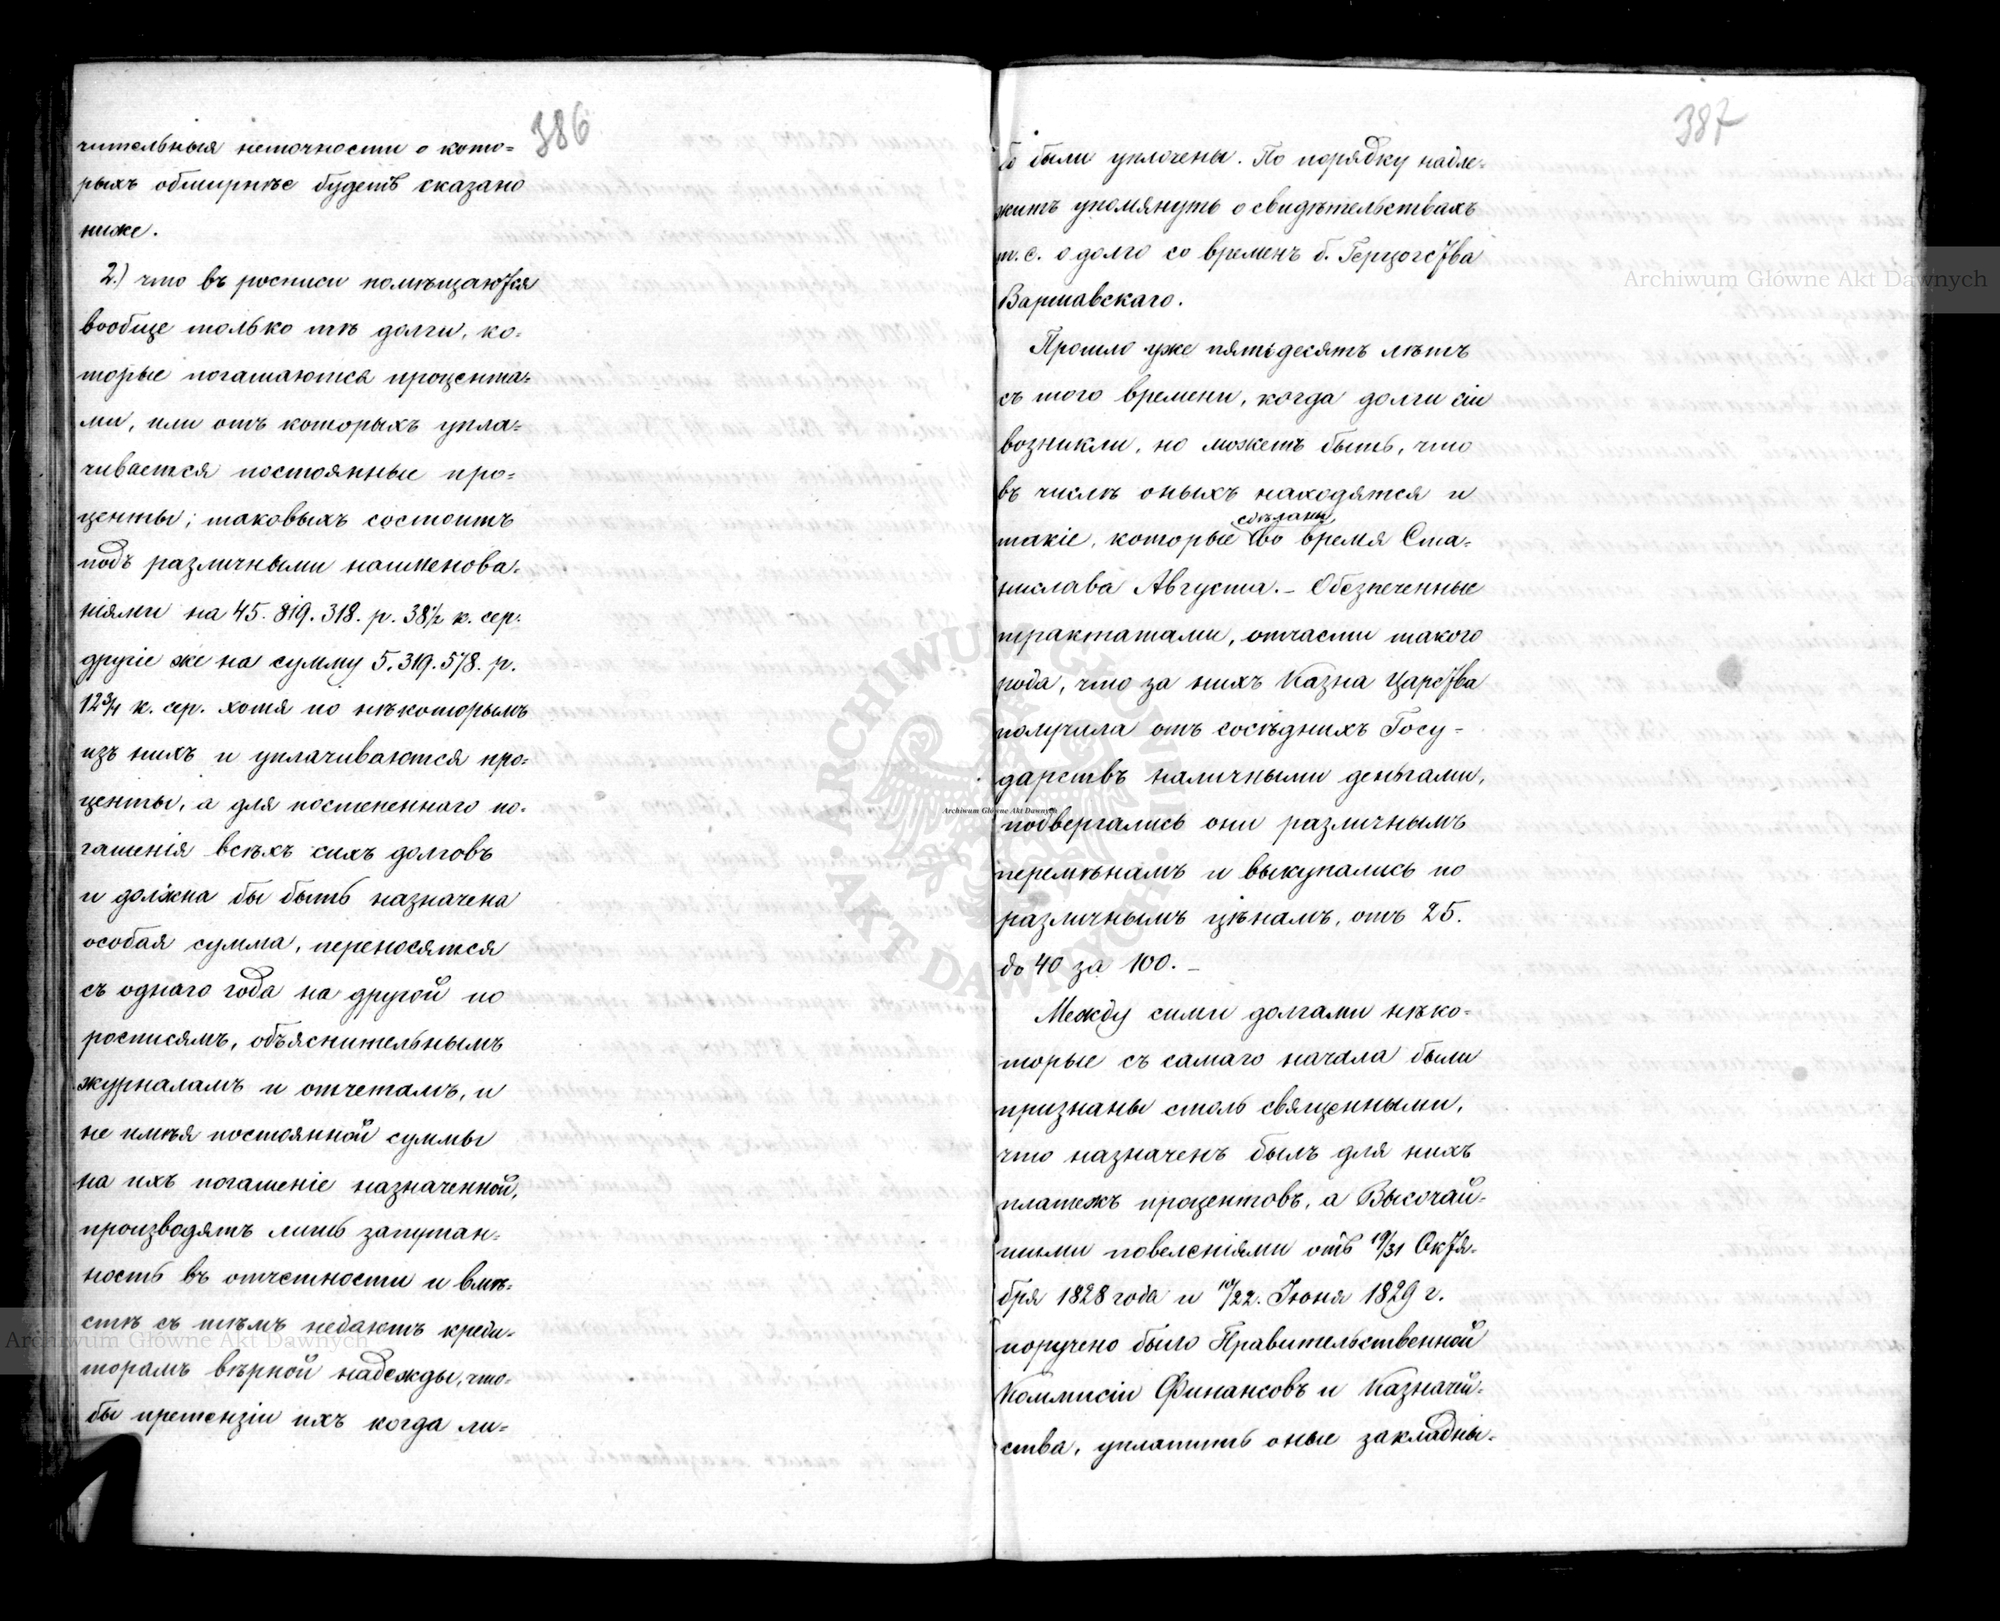 386
чительныя неточности о кото=
рыхъ обширнѣе будетъ сказано
ниже.
2.) что въ росписи помѣщаются
вообще только тѣ долги, ко=
торые погашаются процента=
ми, или отъ которыхъ упла=
чивается постоянные про=
центы; таковыхъ состоитъ
подъ различными наименова=
ніями на 45.819.318. р. 38½ к. сер.
другіе же на сумму 5.319.578. р.
12¾ к. сер. хотя по нѣкоторымъ
изъ нихъ и уплачиваются про=
центы, а для постепеннаго по=
гашенія всѣхъ сихъ долговъ
и должна бы быть назначена
особая сумма, переносятся
съ однаго года на другой по
росписямъ, объяснительнымъ
журналамъ и отчетамъ, и
не имѣя постоянной суммы
на ихъ погашеніе назначенной,
производятъ лишь запутан=
ность въ отчетности и вмѣ=
стѣ съ тѣмъ недаютъ креди=
торамъ вѣрной надежды, что=
бы претензіи ихъ когда ли=
387
бо были уплочены. По порядку надле=
житъ упомянуть о свидѣтельствахъ
т. е. о долго со временъ б. Герцогства
Варшавскаго.
Прошло уже пятьдесятъ лѣтъ
съ того времени, когда долги сіи
возникли, но можетъ быть, что
въ числѣ оныхъ находятся и
сдѣланы
такіе, которые во время Ста=
нислава Августа. – Обезпеченные
трактатами, отчасти такого
рода, что за нихъ Казна Царства
получила отъ сосѣднихъ Госу=
дарствъ наличными деньгами,
подвергались они различнымъ
перемѣнамъ и выкупались по
различнымъ цѣнамъ, отъ 25.
до 40 за 100. –
Между сими долгами нѣко=
торые съ самаго начала были
признаны столь священными,
что назначенъ былъ для нихъ
платежъ процентовъ, а Высочай=
шими повелѣніями отъ 19/31 Октя=
бря 1828 года и 10/22. Іюня 1829 г.
поручено было Правительственной
Коммисіи Финансовъ и Казначей=
ства, уплатить оные закладны=
Archiwum Główne Akt Dawnych
Archiwum Główne Akt Dawnych
Archiwum Główne Akt Dawnych
ARCHIWUM GŁÓWNE · AKT DAWNYCH ·